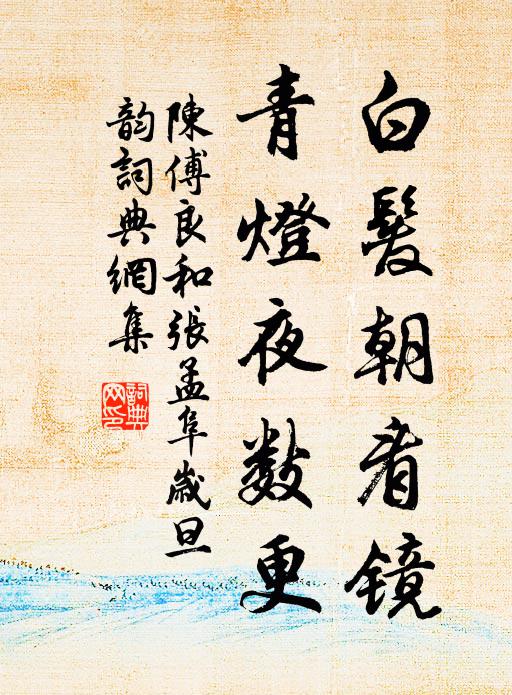 白髮朝看镜
青燈夜數更
陳傅良和張孟阜歲旦
韵詞典網集
詞典网印